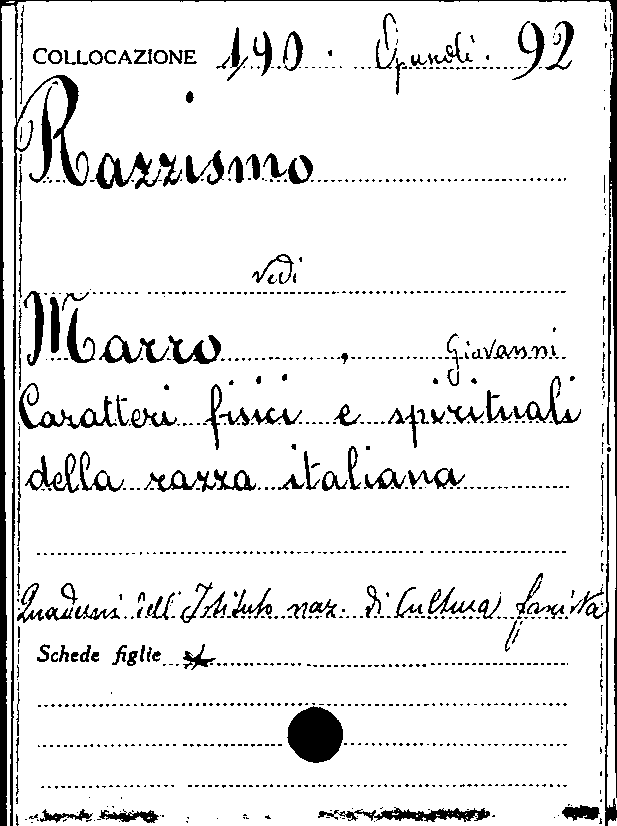 COLLOCAZIONE 190. Opuscoli. 92
Razzismo
vedi
Marro, Giovanni
Caratteri fisici e spirituali
della razza italiana
Quaderni dell'Istituto naz. di Cultura fascista
Schede figlie